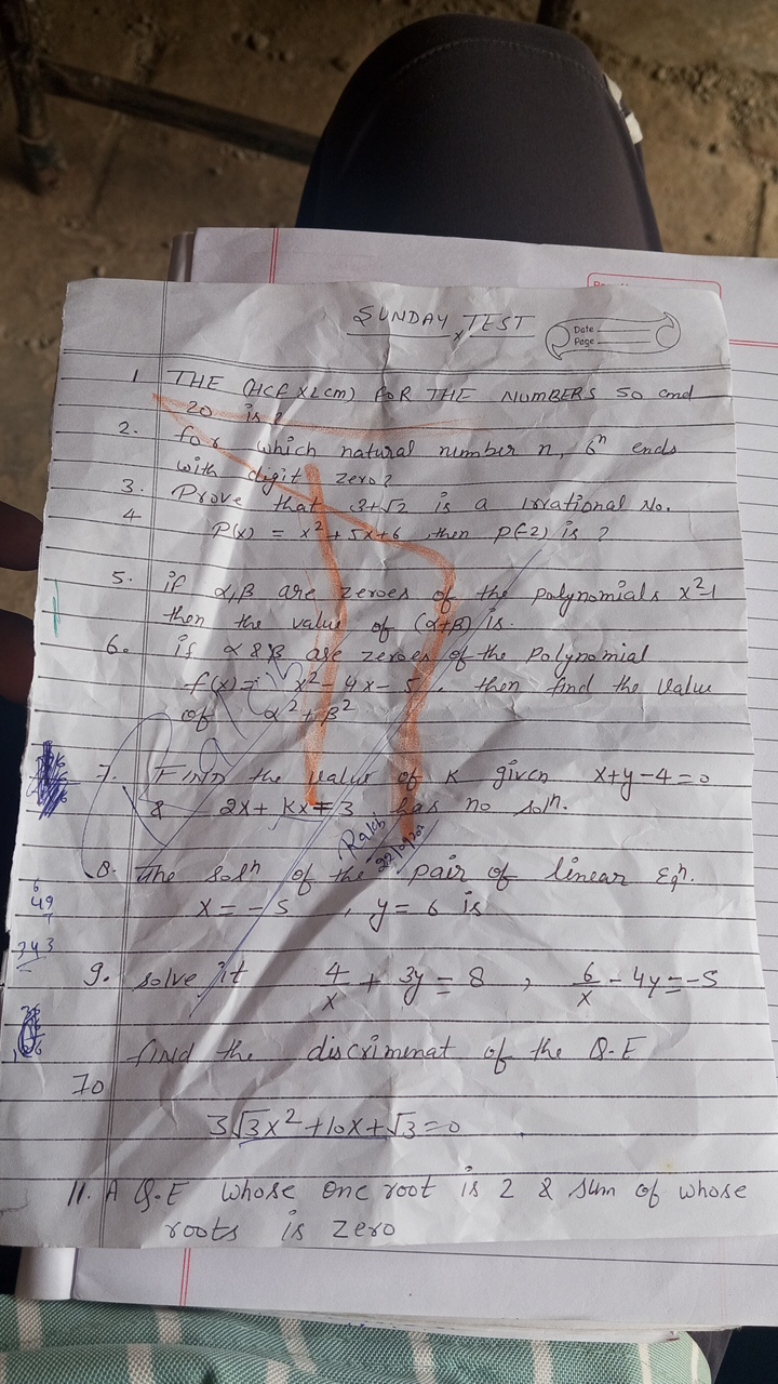 SUNDAY TEST
Date
Page
1 THE (HCF X LCM) FOR THE NUMBERS 50 and
20 is ?
2. for which natural number n, 6ⁿ ends
with digit zero?
3. Prove that 3+√2 is a irrational No.
4 P(x) = x²+5x+6, then P(-2) is ?
5. if α,β are zeroes of the polynomials x²-1
then the value of (α+β) is.
6. if α & β are zeroes of the polynomial
f(x) = x²-4x-5. then find the value
of α²+β²
7. FIND the value of K given x+y-4=0
& 2x+kx=3 has no solⁿ.
8. The solⁿ of the pair of linear Eqⁿ.
x=-5, y=6 is
6
49
7
343
9. solve it 4/x + 3y = 8, 6/x - 4y = -5
find the discrimenat of the Q.E
10
3√3x²+10x+√3=0
11. A Q.E whose one root is 2 & sum of whose
roots is zero